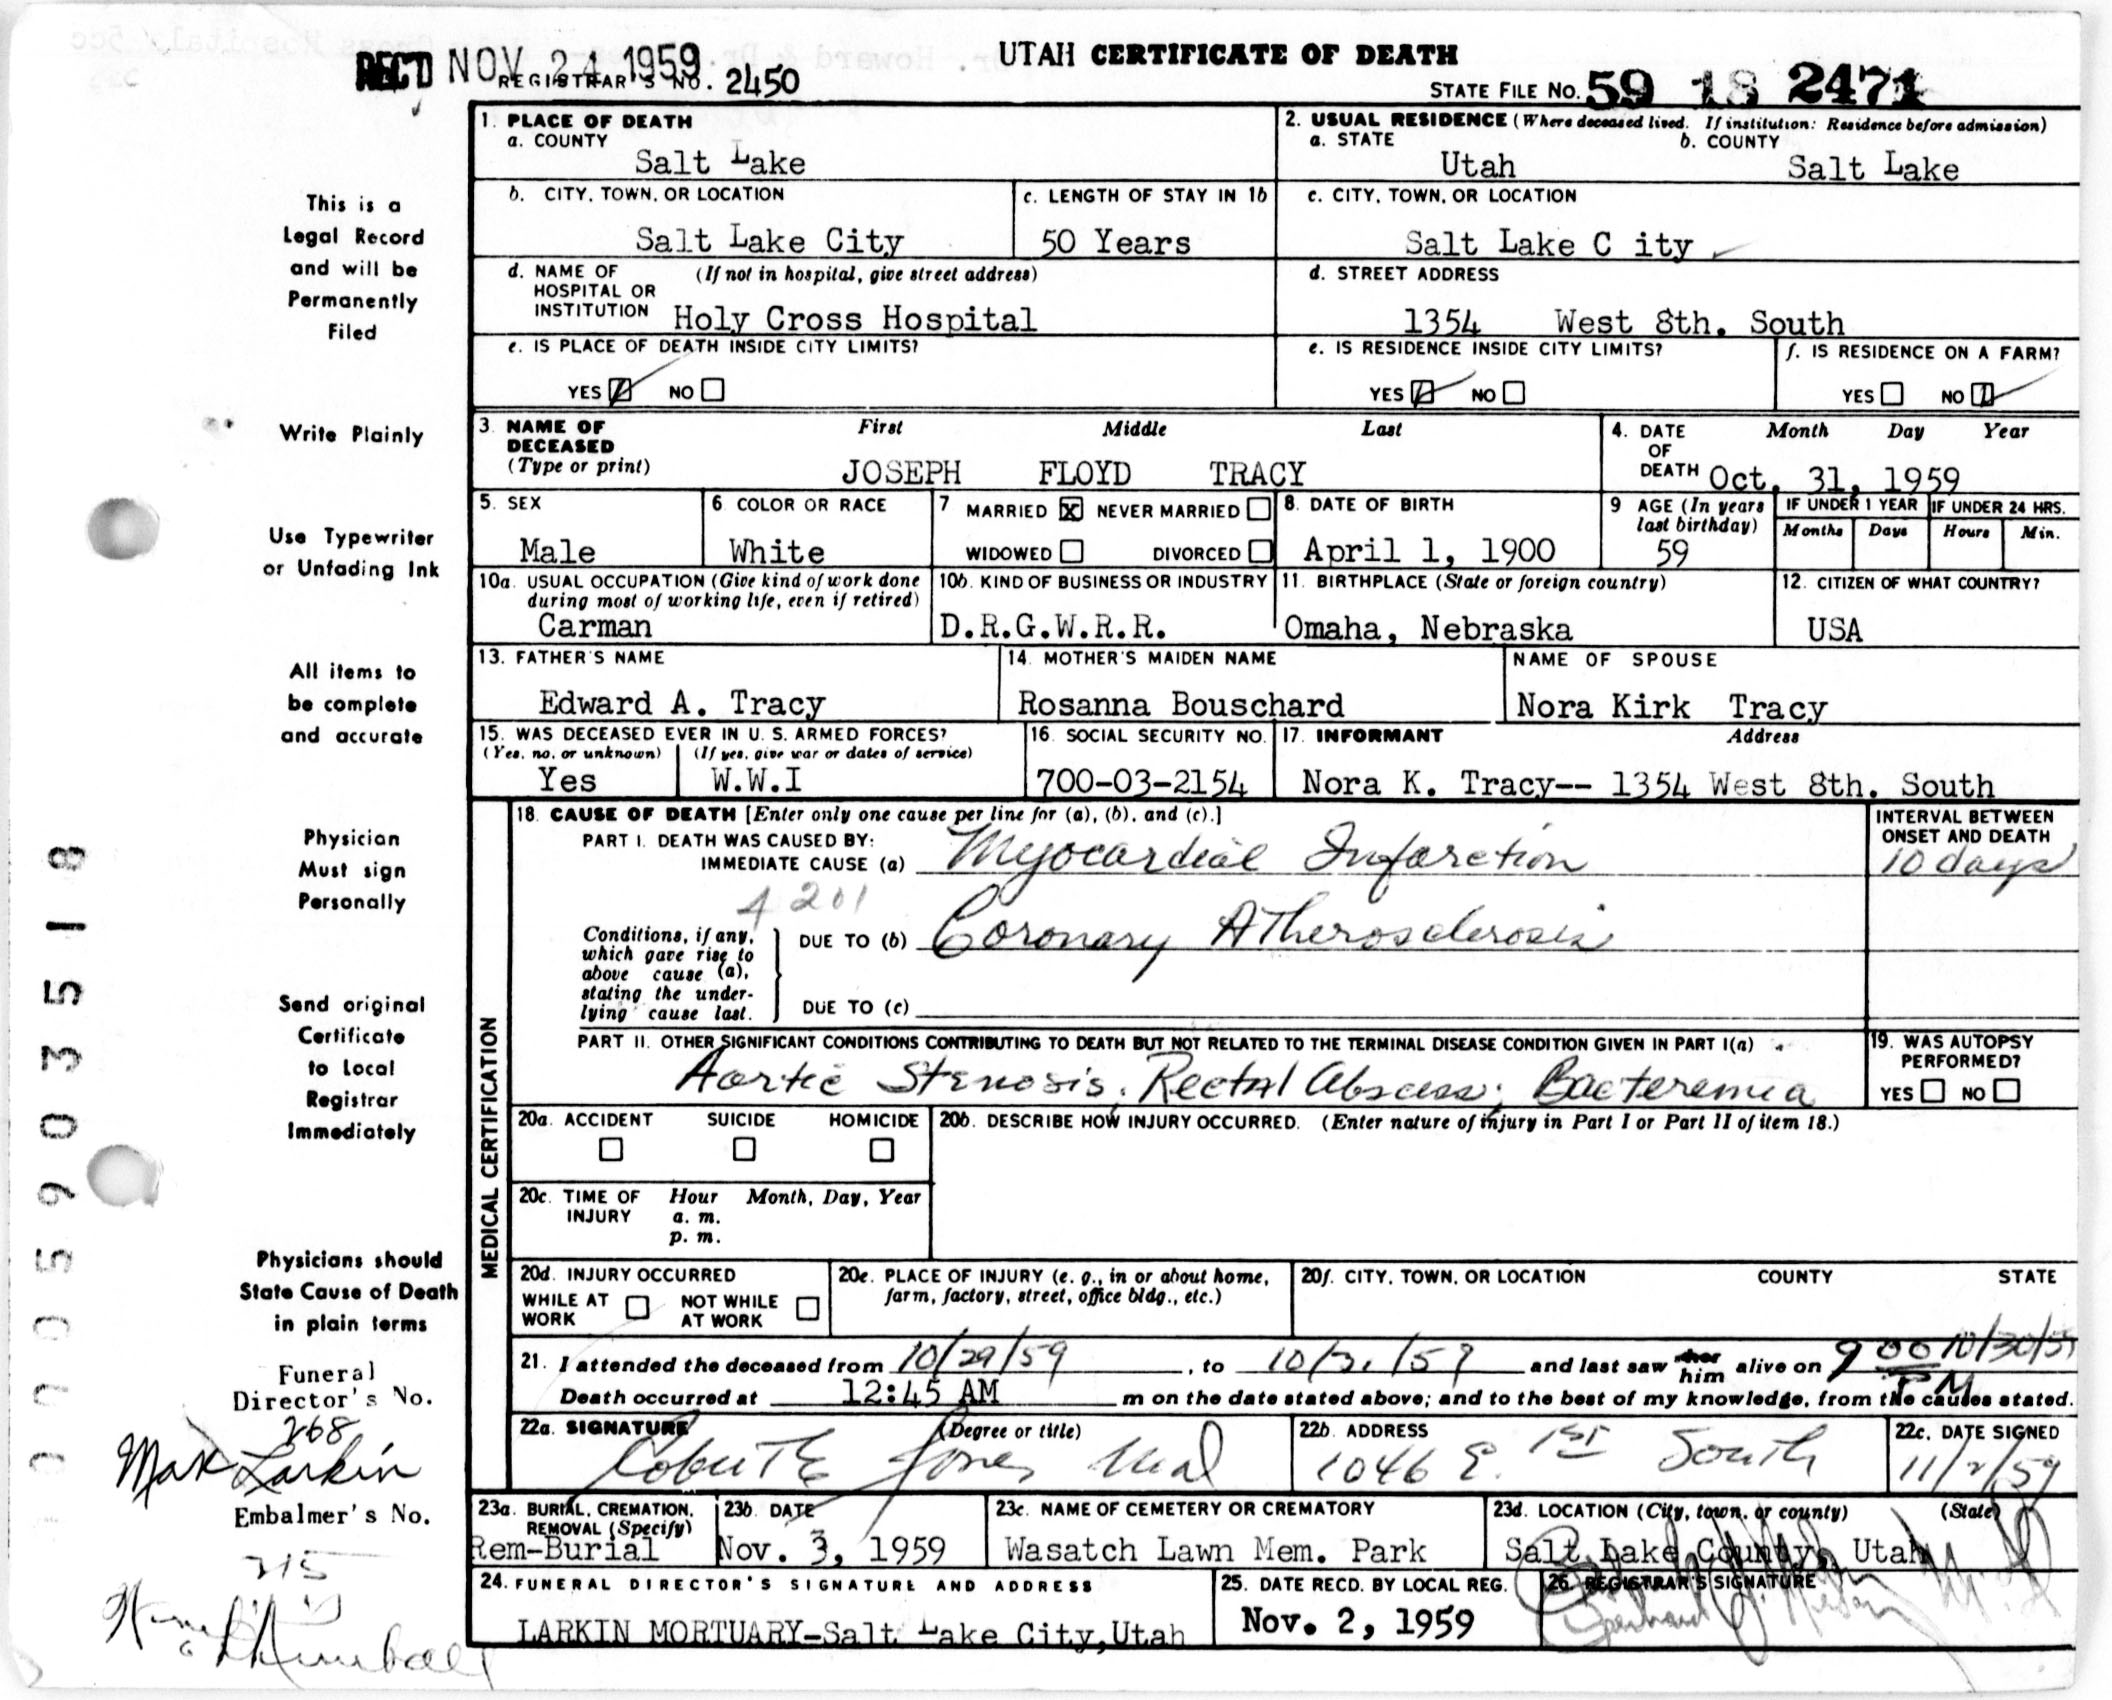 REC'D NOV 24 1959
REGISTRAR'S NO. 2450
UTAH CERTIFICATE OF DEATH
STATE FILE No. 59 18 2471
1. PLACE OF DEATH
a. COUNTY
Salt Lake
2. USUAL RESIDENCE (Where deceased lived. If institution: Residence before admission)
a. STATE
Utah
b. COUNTY
Salt Lake
b. CITY, TOWN, OR LOCATION
Salt Lake City
c. LENGTH OF STAY IN 1b
50 Years
c. CITY, TOWN, OR LOCATION
Salt Lake C ity
d. NAME OF HOSPITAL OR INSTITUTION (If not in hospital, give street address)
Holy Cross Hospital
d. STREET ADDRESS
1354 West 8th. South
e. IS PLACE OF DEATH INSIDE CITY LIMITS?
YES NO
e. IS RESIDENCE INSIDE CITY LIMITS?
YES NO
f. IS RESIDENCE ON A FARM?
YES NO
3. NAME OF DECEASED (Type or print)
First Middle Last
JOSEPH FLOYD TRACY
4. DATE OF DEATH Month Day Year
Oct. 31, 1959
5. SEX
Male
6. COLOR OR RACE
White
7 MARRIED X NEVER MARRIED
WIDOWED DIVORCED
8. DATE OF BIRTH
April 1, 1900
9 AGE (In years last birthday)
59
IF UNDER 1 YEAR
Months Days
IF UNDER 24 HRS.
Hours Min.
10a. USUAL OCCUPATION (Give kind of work done during most of working life, even if retired)
Carman
10b. KIND OF BUSINESS OR INDUSTRY
D.R.G.W.R.R.
11. BIRTHPLACE (State or foreign country)
Omaha, Nebraska
12. CITIZEN OF WHAT COUNTRY?
USA
13. FATHER'S NAME
Edward A. Tracy
14. MOTHER'S MAIDEN NAME
Rosanna Bouschard
NAME OF SPOUSE
Nora Kirk Tracy
15. WAS DECEASED EVER IN U. S. ARMED FORCES?
(Yes, no, or unknown) (If yes, give war or dates of service)
Yes W.W.I
16. SOCIAL SECURITY NO.
700-03-2154
17. INFORMANT Address
Nora K. Tracy-- 1354 West 8th. South
MEDICAL CERTIFICATION
18. CAUSE OF DEATH [Enter only one cause per line for (a), (b), and (c).]
PART I. DEATH WAS CAUSED BY:
IMMEDIATE CAUSE (a) Myocardial Infarction
INTERVAL BETWEEN ONSET AND DEATH
10 days
4201
Conditions, if any, which gave rise to above cause (a), stating the underlying cause last.
DUE TO (b) Coronary Atherosclerosis
DUE TO (c)
PART II. OTHER SIGNIFICANT CONDITIONS CONTRIBUTING TO DEATH BUT NOT RELATED TO THE TERMINAL DISEASE CONDITION GIVEN IN PART I(a)
Aortic Stenosis; Rectal Abscess; Bacteremia
19. WAS AUTOPSY PERFORMED?
YES NO
20a. ACCIDENT SUICIDE HOMICIDE
20b. DESCRIBE HOW INJURY OCCURRED. (Enter nature of injury in Part I or Part II of item 18.)
20c. TIME OF INJURY Hour Month, Day, Year
a. m.
p. m.
20d. INJURY OCCURRED
WHILE AT WORK NOT WHILE AT WORK
20e. PLACE OF INJURY (e. g., in or about home, farm, factory, street, office bldg., etc.)
20f. CITY, TOWN, OR LOCATION COUNTY STATE
21. I attended the deceased from 10/29/59, to 10/31/59 and last saw her him alive on 9 00 PM 10/30/59
Death occurred at 12:45 AM m on the date stated above; and to the best of my knowledge, from the causes stated.
22a. SIGNATURE (Degree or title)
Robert E Jones
22b. ADDRESS
1046 E. 1st South
22c. DATE SIGNED
11/2/59
23a. BURIAL, CREMATION, REMOVAL (Specify)
Rem-Burial
23b. DATE
Nov. 3, 1959
23c. NAME OF CEMETERY OR CREMATORY
Wasatch Lawn Mem. Park
23d. LOCATION (City, town, or county) (State)
Salt Lake County, Utah
24. FUNERAL DIRECTOR'S SIGNATURE AND ADDRESS
LARKIN MORTUARY-Salt Lake City, Utah
25. DATE RECD. BY LOCAL REG.
Nov. 2, 1959
26. REGISTRAR'S SIGNATURE
This is a
Legal Record
and will be
Permanently
Filed
Write Plainly
Use Typewriter
or Unfading Ink
All items to
be complete
and accurate
Physician
Must sign
Personally
Send original
Certificate
to Local
Registrar
Immediately
Physicians should
State Cause of Death
in plain terms
Funeral
Director's No.
268
Max Larkin
Embalmer's No.
215
Kimball
0005903518